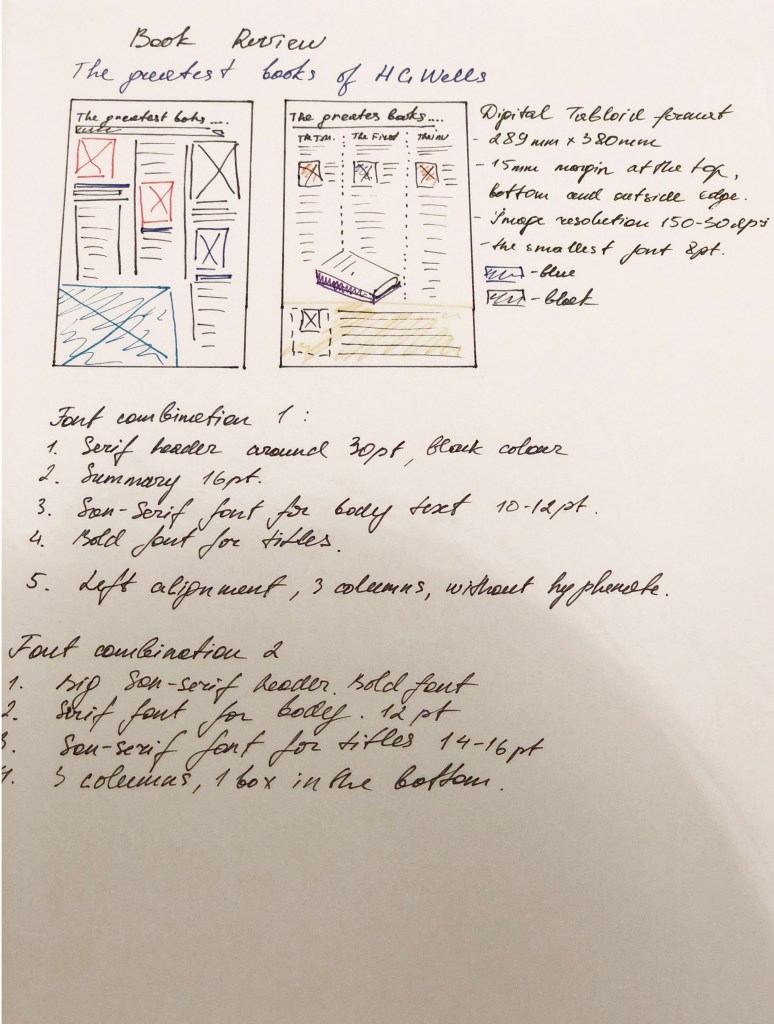 Book Review
The greatest books of HG Wells
The greatest boks ....
The greates books....
The T.M.
The First
The Inv
Digital Tabloid format
- 289 mm x 380 mm
- 15 mm margin at the top,
bottom and outside edge.
- Image resolution 150-30 dpi
- the smallest font 8pt.
- blue
- black
Font combination 1 :
1. Serif header around 30pt, black colour
2. Summary 16pt.
3. San-Serif font for body text 10-12pt.
4. Bold font for titles.
5. Left alignment, 3 columns, without hyphenate.
Font combination 2
1. Big San-serif header. Bold font
2. Serif font for body. 12 pt
3. San-serif font for titles 14-16pt
4. 3 columns, 1 box in the bottom.